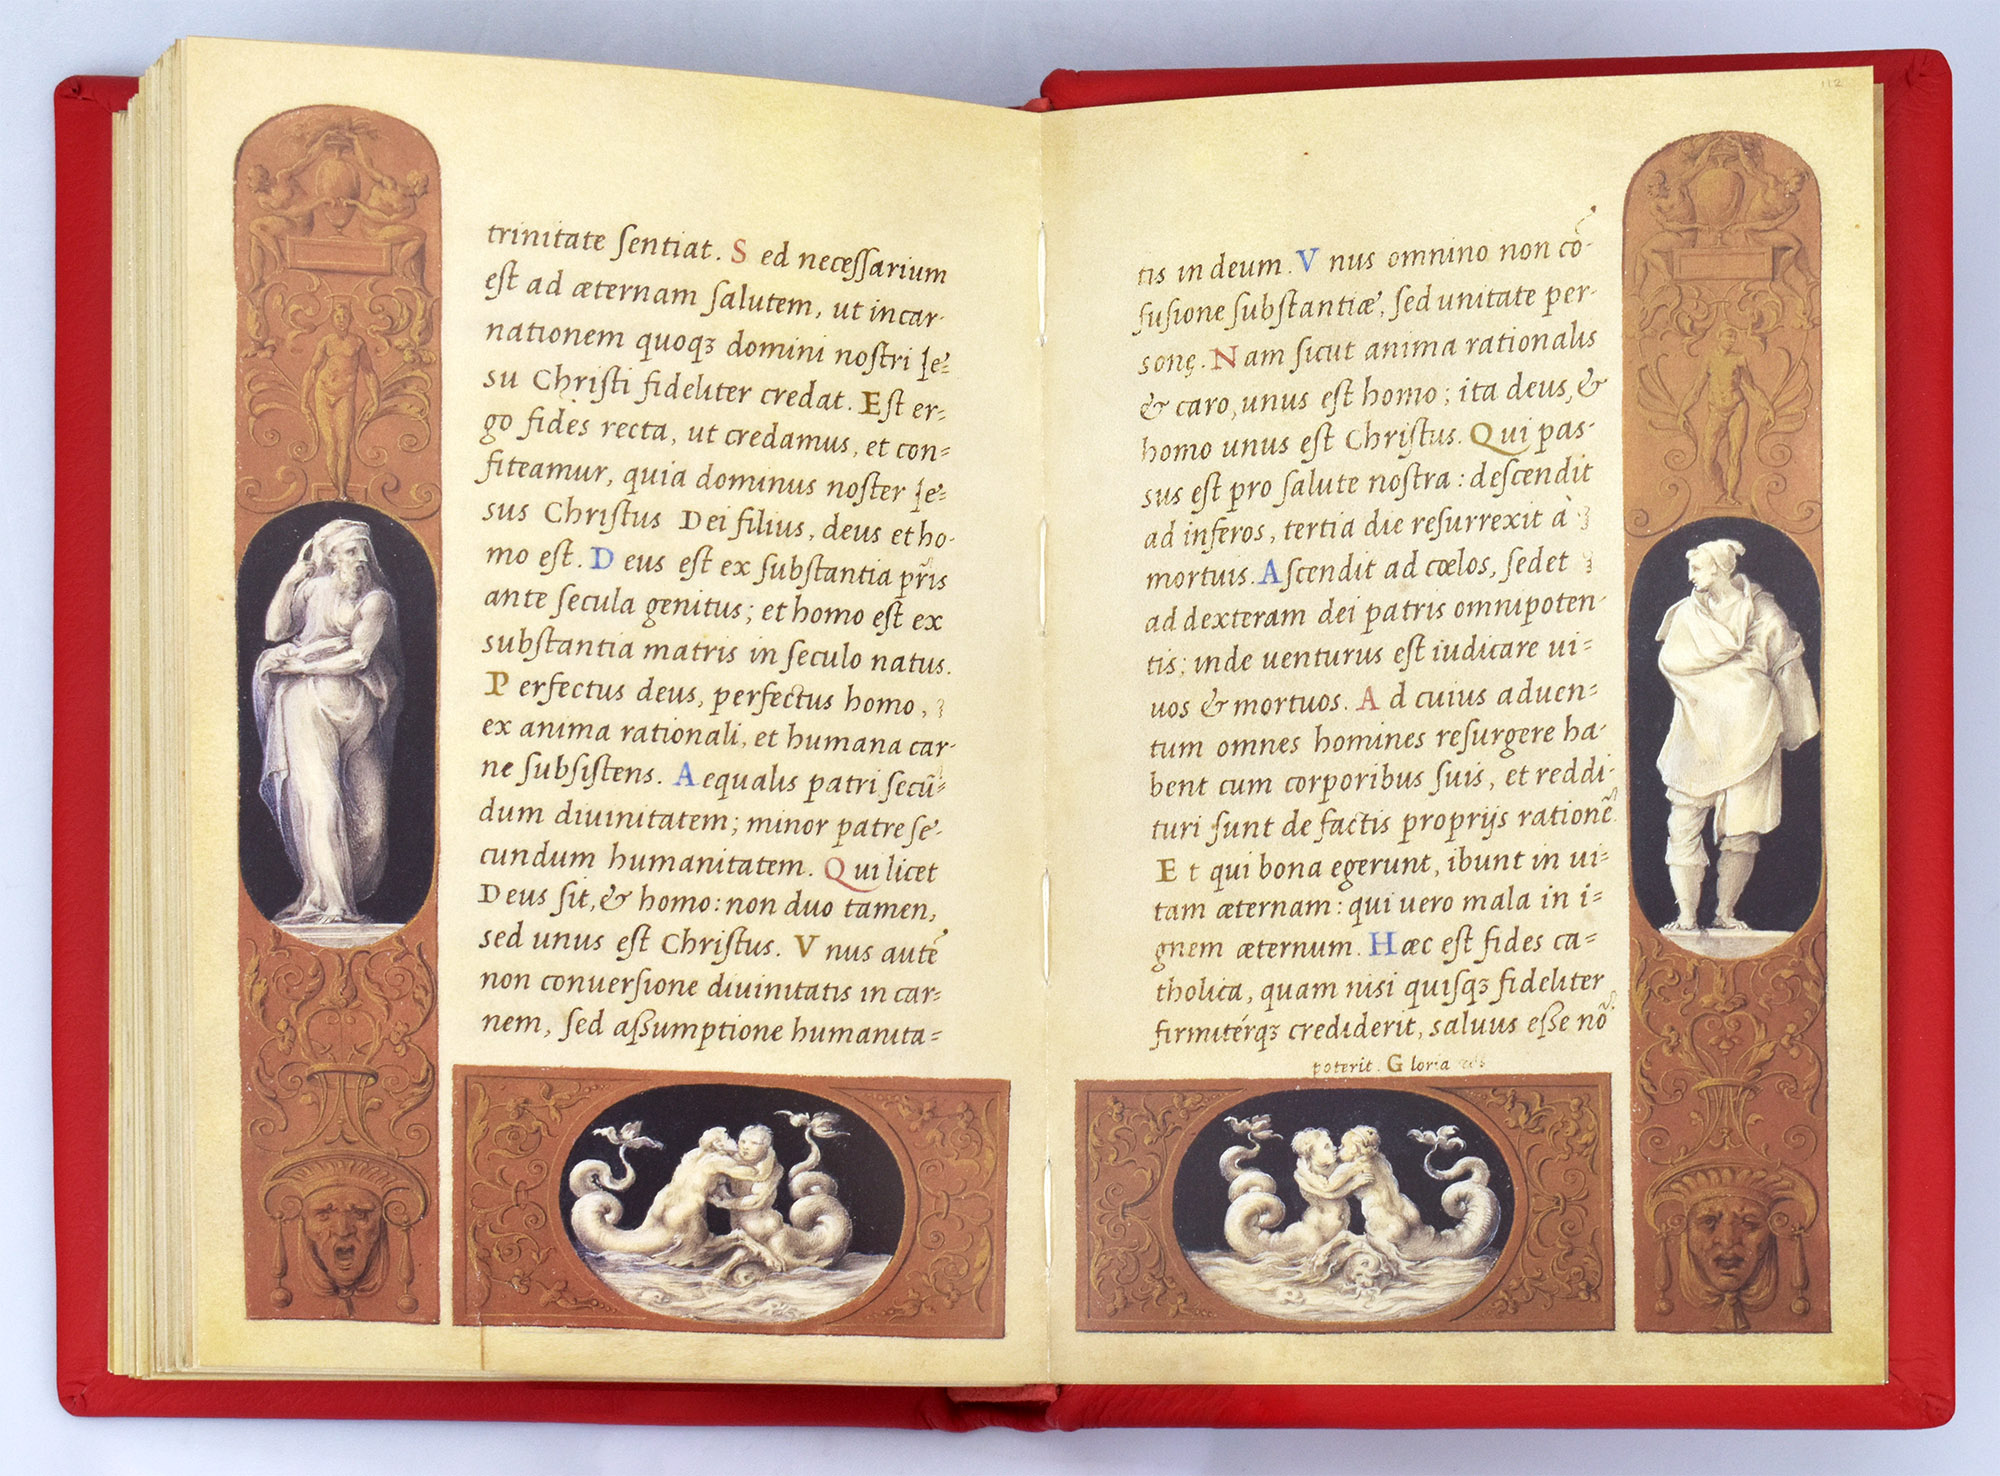 trinitate ſentiat. Sed neceſſarium
eſt ad æternam ſalutem, ut incar-
nationem quoqꝫ domini noſtri Ie=
su Chriſti fideliter credat. Eſt er=
go fides recta, ut credamus, et con=
fiteamur, quia dominus noſter Ie=
sus Chriſtus Dei filius, deus et ho-
mo eſt. Deus eſt ex ſubſtantia pr̃is
ante ſecula genitus; et homo eſt ex
ſubſtantia matris in ſeculo natus.
Perfectus deus, perfectus homo,
ex anima rationali, et humana car-
ne ſubſiſtens. Aequalis patri ſecũ=
dum diuinitatem; minor patre ſe-
cundum humanitatem. Qui licet
Deus ſit, & homo: non duo tamen,
sed unus eſt Chriſtus. Vnus autẽ
non conuerſione diuinitatis in car=
nem, ſed aſſumptione humanita=
112
tis in deum. Vnus omnino non cõ-
fuſione ſubſtantiæ, ſed unitate per-
sonę. Nam ſicut anima rationalis
& caro, unus eſt homo; ita deus, &
homo unus eſt Chriſtus. Qui paſ-
sus eſt pro ſalute noſtra: deſcendit
ad inferos, tertia die reſurrexit à
mortuis. Aſcendit ad cœlos, ſedet
ad dexteram dei patris omnipoten-
tis; inde uenturus est iudicare ui=
uos & mortuos. Ad cuius aduen=
tum omnes homines reſurgere ha-
bent cum corporibus ſuis, et reddi-
turi ſunt de factis proprijs rationẽ.
Et qui bona egerunt, ibunt in ui=
tam æternam: qui uero mala in i=
gnem æternum. Hæc eſt fides ca=
tholica, quam niſi quiſqꝫ fideliter
firmitérqꝫ crediderit, saluus eſſe nõ
poterit. Gloria